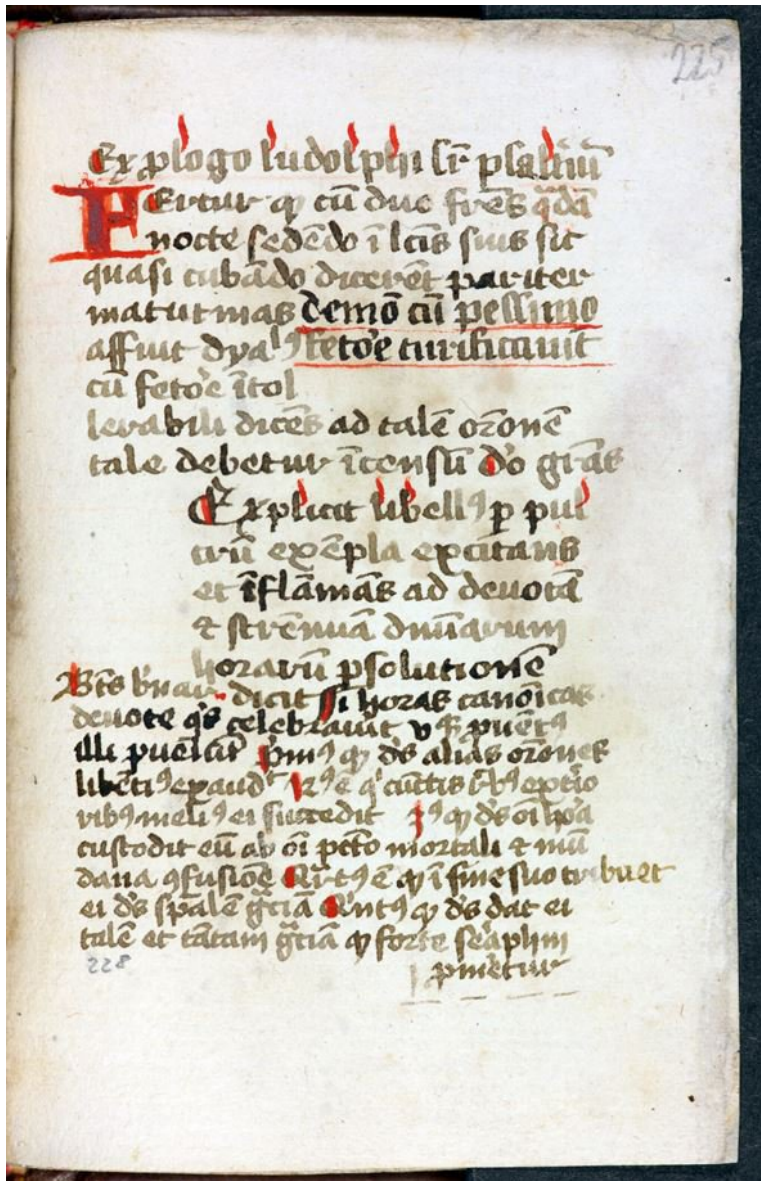 225
Ex plogo ludolphi sr̄ psalt̾iū
FErtur ꝙ cū duo fr̄es q̄dā
nocte sedēdo ī lcīs suis sic
quasi cubādo dicerēt pariter
matutinas demō cū pessimo
affuit dyalꝰ fetoꝛe turificauit
cū fetoꝛe ītol
lerabili dicēs ad talē orōnē
tale debetur īcensū dō grās
Explicit libellꝰ ꝑ pul
crū exēpla excitans
et īflāmās ad deuotā
⁊ strēnuā dīnarum
horarū ꝑsolutionē
Bt̄s b̄nar dicit Si horas canōicas
deuote q̄s celebrauīt ꝑuēt
illi ꝑueniūt pͥmꝰ ꝙ ds̄ alias orōnes
libētiꝰ exaud cūctis
ribꝰ meliꝰ ei succedit ꝙ ds̄ oī hoꝛa
custodit eū ab oī pctō mortali ⁊ mū
dana ꝯfusiōe Qͣrtꝰ ē ꝙ ī fine suo tribuet
ei ds̄ spālē gr̄ciā Qͥntꝰ ꝙ ds̄ dat ei
talē et tātam gr̄ciā ꝙ forte seraphin
228
pmietur